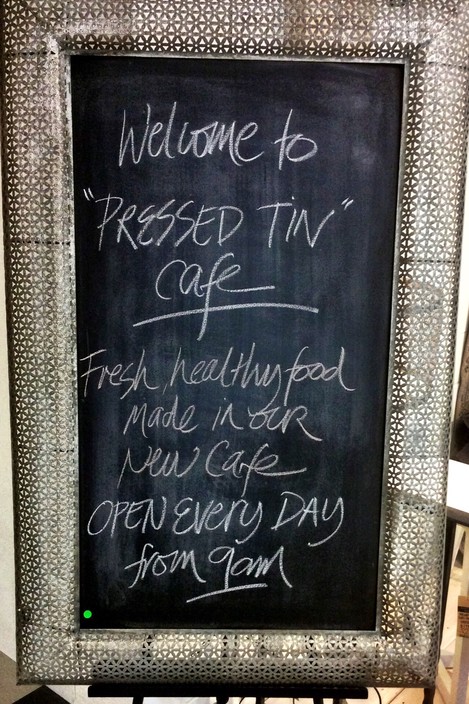 Welcome to
"PRESSED TIN"
Cafe
Fresh healthy food
made in our
New Cafe
OPEN EVERY DAY
from 9am